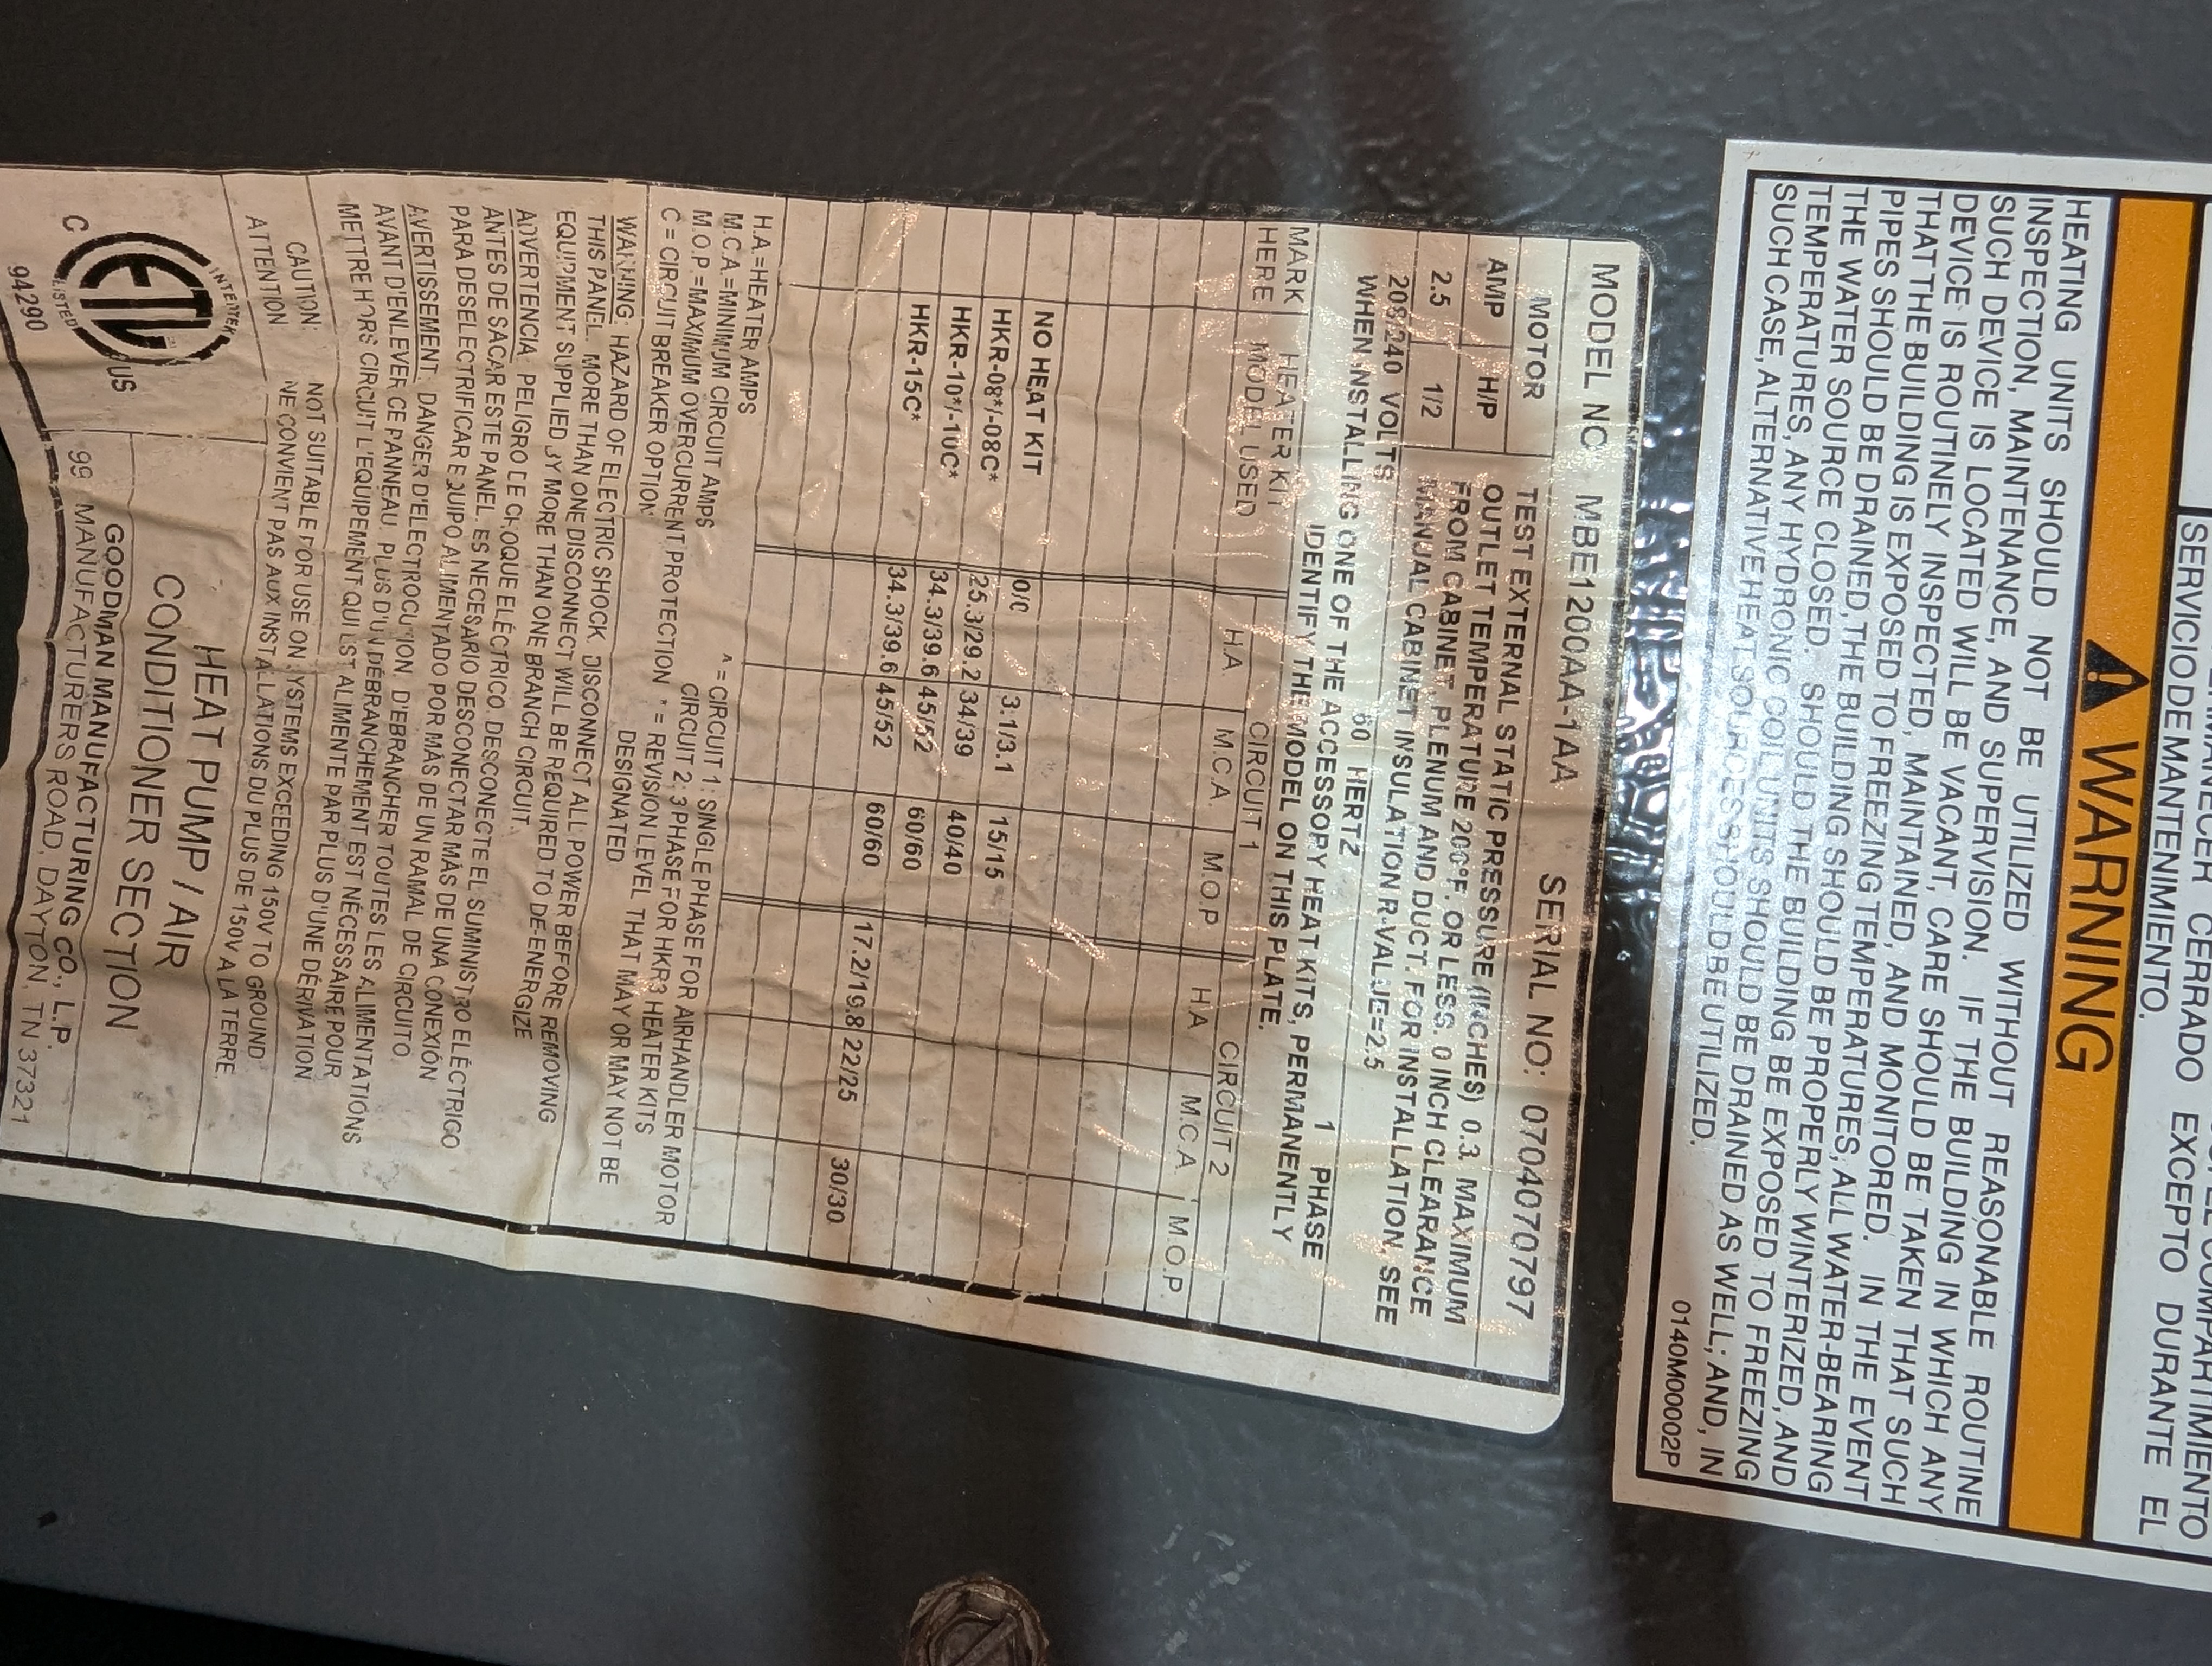 SERVICIO DE MANTENIMIENTO.
CERRADO EXCEPTO DURANTE EL
WARNING
HEATING UNITS SHOULD NOT BE UTILIZED WITHOUT REASONABLE ROUTINE
INSPECTION, MAINTENANCE, AND SUPERVISION. IF THE BUILDING IN WHICH ANY
SUCH DEVICE IS LOCATED WILL BE VACANT, CARE SHOULD BE TAKEN THAT SUCH
DEVICE IS ROUTINELY INSPECTED, MAINTAINED, AND MONITORED. IN THE EVENT
THAT THE BUILDING IS EXPOSED TO FREEZING TEMPERATURES, ALL WATER-BEARING
PIPES SHOULD BE DRAINED, THE BUILDING SHOULD BE PROPERLY WINTERIZED, AND
THE WATER SOURCE CLOSED. SHOULD THE BUILDING BE EXPOSED TO FREEZING
TEMPERATURES, ANY HYDRONIC COIL UNITS SHOULD BE DRAINED AS WELL; AND, IN
SUCH CASE, ALTERNATIVE HEAT SOURCES SHOULD BE UTILIZED.
0140M00002P
MODEL NO. MBE1200AA-1AA SERIAL NO: 0704070797
MOTOR
AMP H/P
2.5 1/2
TEST EXTERNAL STATIC PRESSURE (INCHES) 0.3. MAXIMUM
OUTLET TEMPERATURE 200°F. OR LESS. 0 INCH CLEARANCE
FROM CABINET, PLENUM AND DUCT. FOR INSTALLATION, SEE
MANUAL CABINET INSULATION R-VALUE=2.5
208/240 VOLTS 60 HERTZ 1 PHASE
WHEN INSTALLING ONE OF THE ACCESSORY HEAT KITS, PERMANENTLY
IDENTIFY THE MODEL ON THIS PLATE.
MARK HERE HEATER KIT MODEL USED CIRCUIT 1 CIRCUIT 2
H.A. M.C.A. M.O.P H.A. M.C.A. M.O.P.
NO HEAT KIT 0/0 3.1/3.1 15/15
HKR-08*/-08C* 25.3/29.2 34/39 40/40
HKR-10*/-10C* 34.3/39.6 45/52 60/60
HKR-15C* 34.3/39.6 45/52 60/60 17.2/19.8 22/25 30/30
H.A.=HEATER AMPS
M.C.A.=MINIMUM CIRCUIT AMPS
M.O.P.=MAXIMUM OVERCURRENT PROTECTION
C = CIRCUIT BREAKER OPTION
^ = CIRCUIT 1: SINGLE PHASE FOR AIRHANDLER MOTOR
CIRCUIT 2: 3 PHASE FOR HKR3 HEATER KITS
* = REVISION LEVEL THAT MAY OR MAY NOT BE
DESIGNATED
WARNING: HAZARD OF ELECTRIC SHOCK. DISCONNECT ALL POWER BEFORE REMOVING
THIS PANEL. MORE THAN ONE DISCONNECT WILL BE REQUIRED TO DE-ENERGIZE
EQUIPMENT SUPPLIED BY MORE THAN ONE BRANCH CIRCUIT.
ADVERTENCIA: PELIGRO DE CHOQUE ELÉCTRICO. DESCONECTE EL SUMINISTRO ELÉCTRICO
ANTES DE SACAR ESTE PANEL. ES NECESARIO DESCONECTAR MÁS DE UNA CONEXIÓN
PARA DESELECTRIFICAR EQUIPO ALIMENTADO POR MÁS DE UN RAMAL DE CIRCUITO.
AVERTISSEMENT: DANGER D'ELECTROCUTION. DÉBRANCHER TOUTES LES ALIMENTATIONS
AVANT D'ENLEVER CE PANNEAU. PLUS D'UN DÉBRANCHEMENT EST NÉCESSAIRE POUR
METTRE HORS CIRCUIT L'EQUIPEMENT QUI EST ALIMENTE PAR PLUS D'UNE DÉRIVATION
CAUTION: NOT SUITABLE FOR USE ON SYSTEMS EXCEEDING 150V TO GROUND.
ATTENTION NE CONVIENT PAS AUX INSTALLATIONS DU PLUS DE 150V A LA TERRE.
INTERTEK
ETL
C LISTED US
94290
HEAT PUMP / AIR
CONDITIONER SECTION
GOODMAN MANUFACTURING CO., L.P.
MANUFACTURERS ROAD, DAYTON, TN 37321